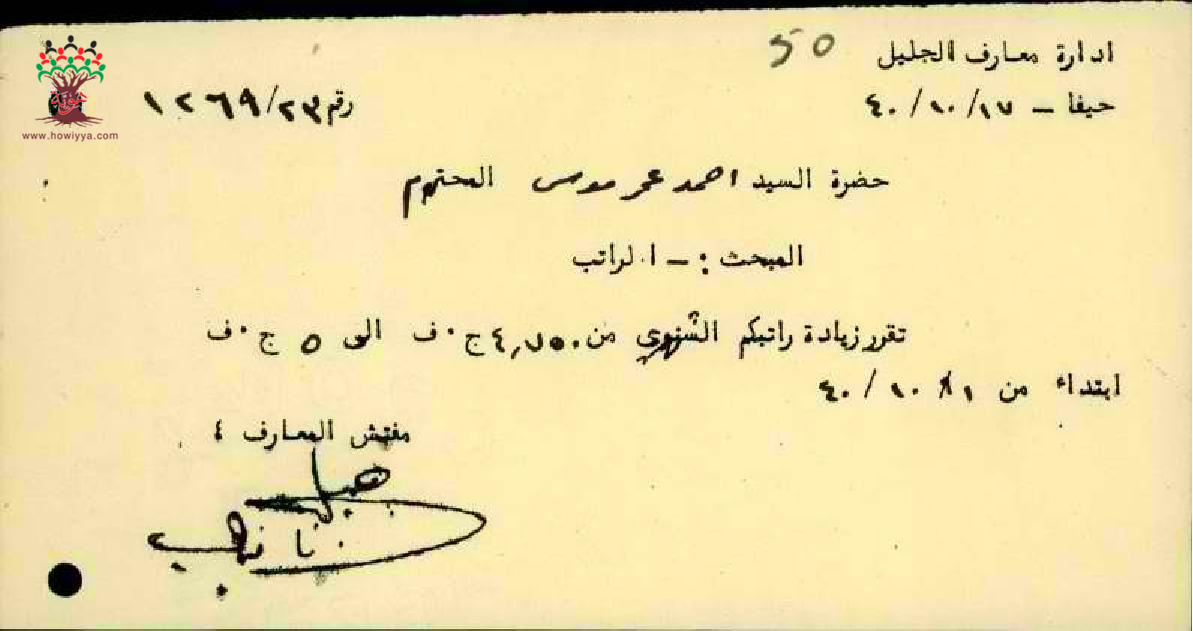 50
ادارة معارف الجليل
حيفا – ٤٠/١٠/١٧
رقم ١٢٦٩/٢٣
هوية
www.howiyya.com
حضرة السيد احمد عمر موسى المحترم
المبحث :– الراتب
تقرر زيادة راتبكم الشهري من ٤,٧٥٠ ج٠ف الى ٥ ج٠ف
ابتداء من ٤٠/١٠/١
مفتش المعارف ٤